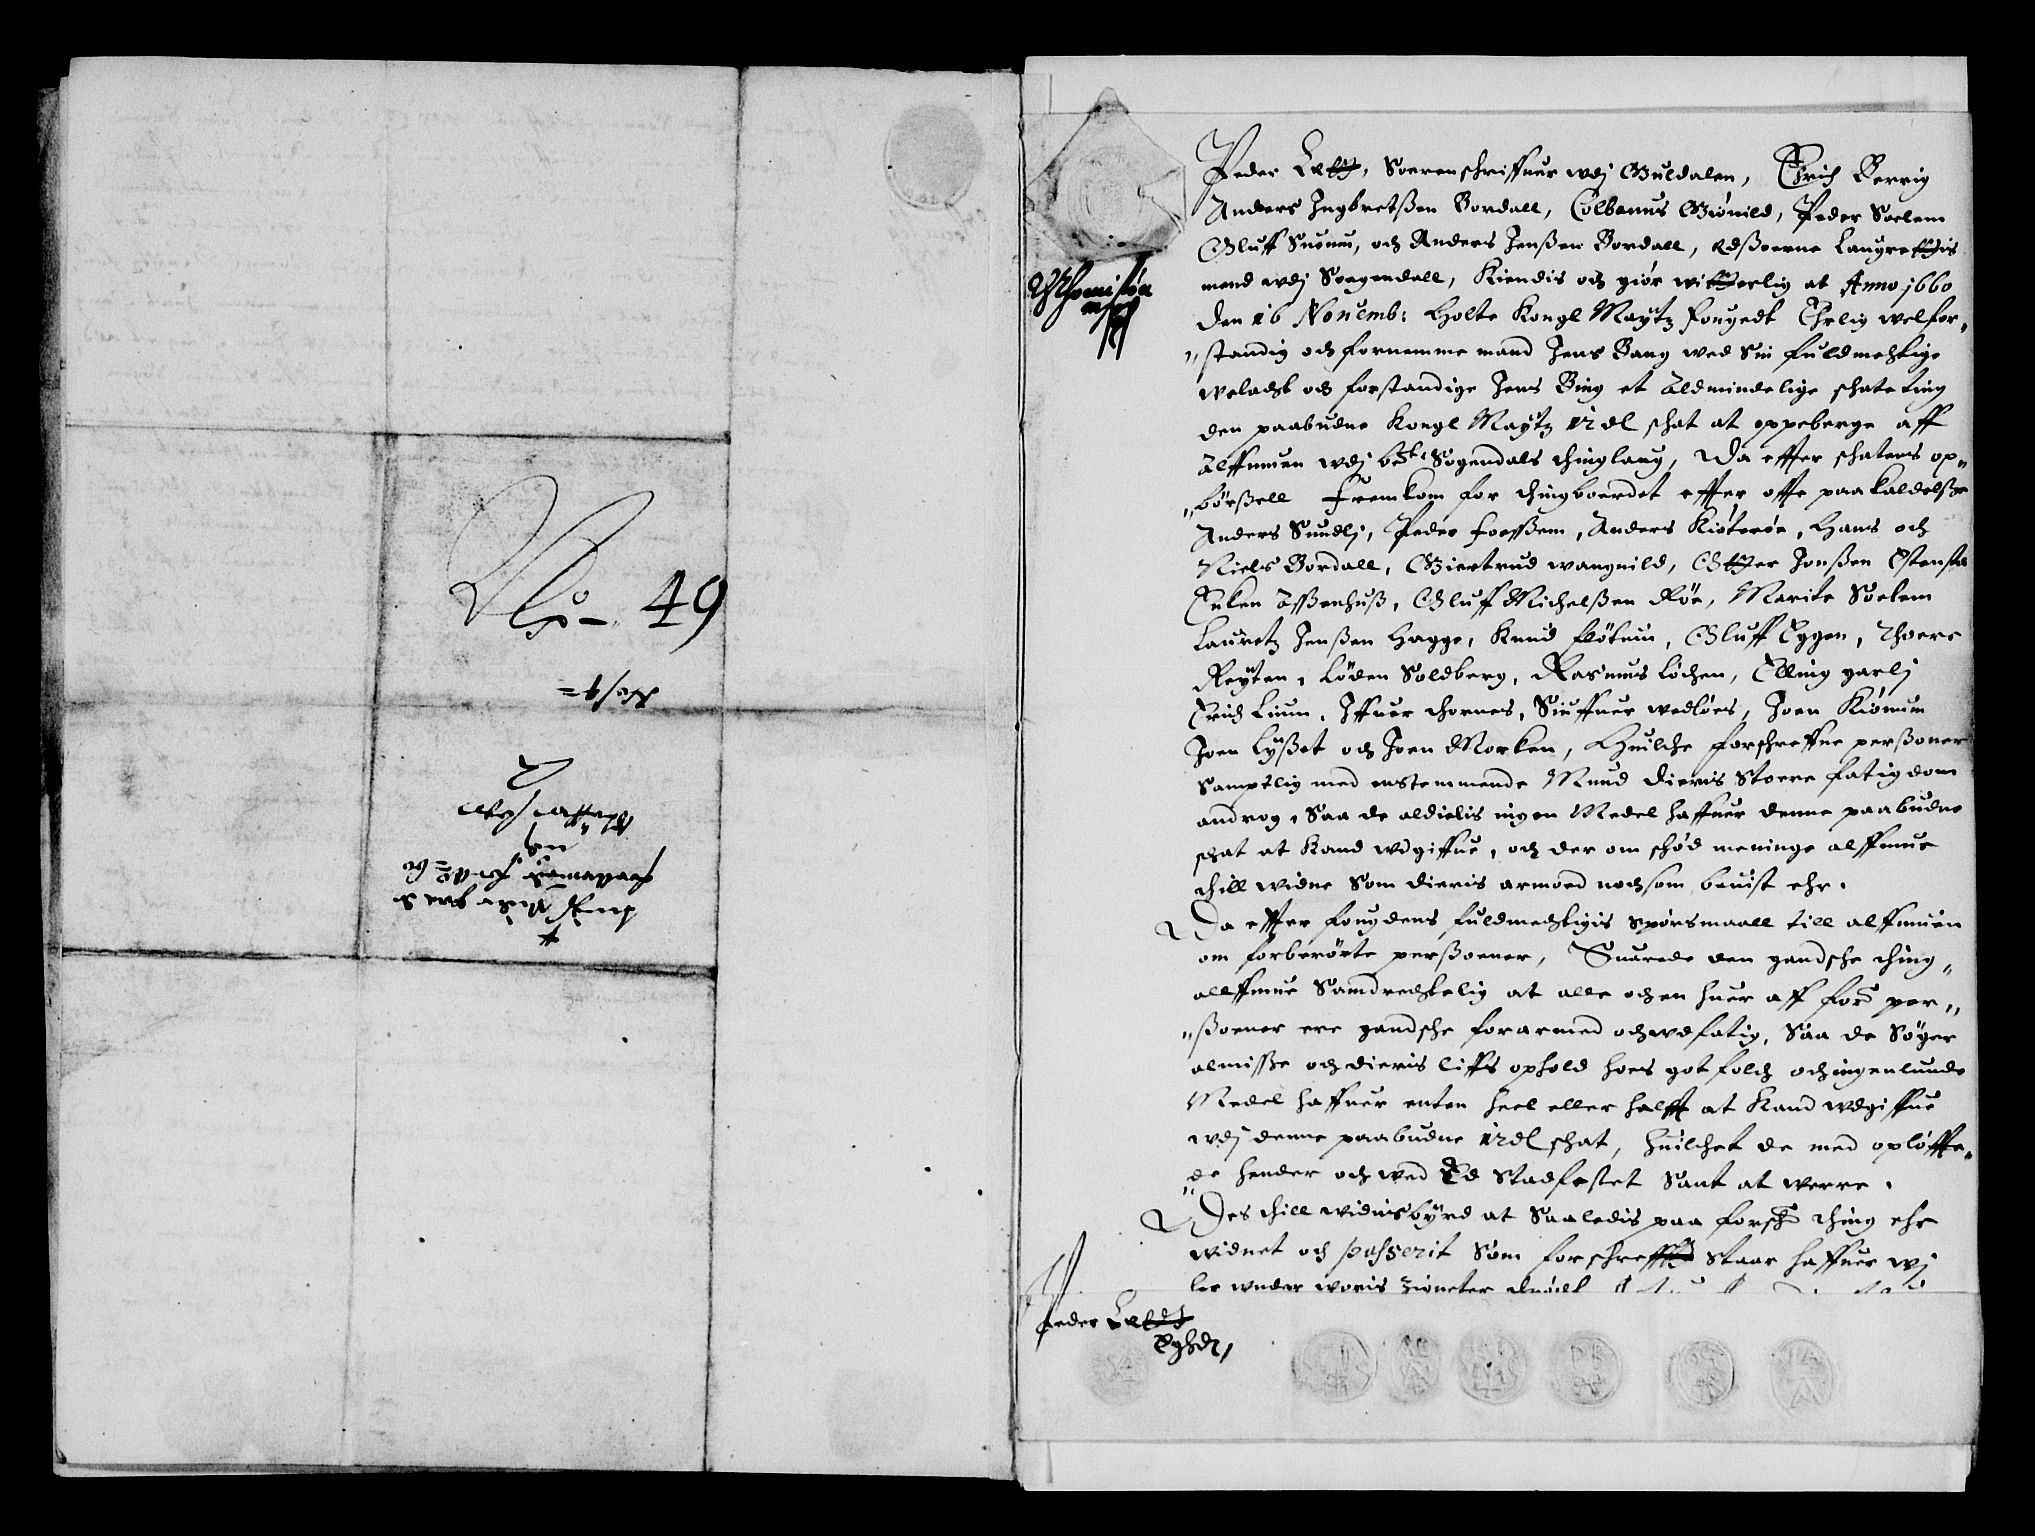 No 49
No 9=
Peder Soerenschriffuer wdj Guldalen, Erich Berrig
Anders Ingbretßen Bordall, Colbanus Giønild, Peder Soelem
Oluff och Anders Jenßen Bordall, edßoerne Laugrettis
mend wdj Soegendall, Kiendis och giør witterlig at Anno 1660
den 16 Nouemb: Holte Kongl Maytz fougedt Ehrlig welfor„
„standig och fornemme mand Jens Bang wed Sin fuldmechtige
welacht och forstandige Jens Bing et Aldmindelige schate ting
den paabudne Kongl Maytz 12 dl schat at oppeberge aff
Alffmuen wdj Sogendals thinglaug, Da effter schatens op„
„børßell fremkom for thingboerdet effter offte paakaldelße
Anders Sundlj, Peder Forßem, Anders Kioterøe, Hans och
Niels Bordall, Giertrud wangnild, Otter Jonßen Ostensta
Encken Aßenhuß, Oluff Michelßen Røe, Marite Soelem
Lauretz Jenßen Hagge, Knud fløtuin, Oluff Eggen, Thoere
Reyten, Løden Soldberg, Rasmus Løchen, Elling garlj
Erich Liun, Iffuer thornes, Siuffuer wedløes, Joen Kiønum
Joen Lyßet och Joen Morken, Huilche forschreffne perßoner
Samptlig med enstemmende Mund dieris Stoere fatigdom
androg, Saa de aldielis ingen Medel haffuer denne paabudne
schat at Kand wdgiffue, och der om schød meninge alffmue
thill widne Som dieris armoed nochsom beuist ehr.
Da effter fougdens fuldmechtigis spørsmaall till alffmuen
om forberørte perßoener, Suarede den gandsche thing„
allffmue Samdrechtelig at alle och en huer aff for: per„
„ßoener ere gandsche forarmed och wdfatig, Saa de Søger
almisße och dieris liffs ophold hoes got folch och ingenlunde
Medel haffuer enten heel eller halfft at Kand wdgiffue
wdj denne paabudne 12 dl schat, huilchet de med opløffte„
„de hender och wed Ed Stadfestet Sant at werre.
Des thill widnisbyrd at Saaledis paa forsch: thing ehr
widnet och passerit Som forschreffuit Staar haffuer wj
her wnder woris Zigneter
Peder
Eghd,